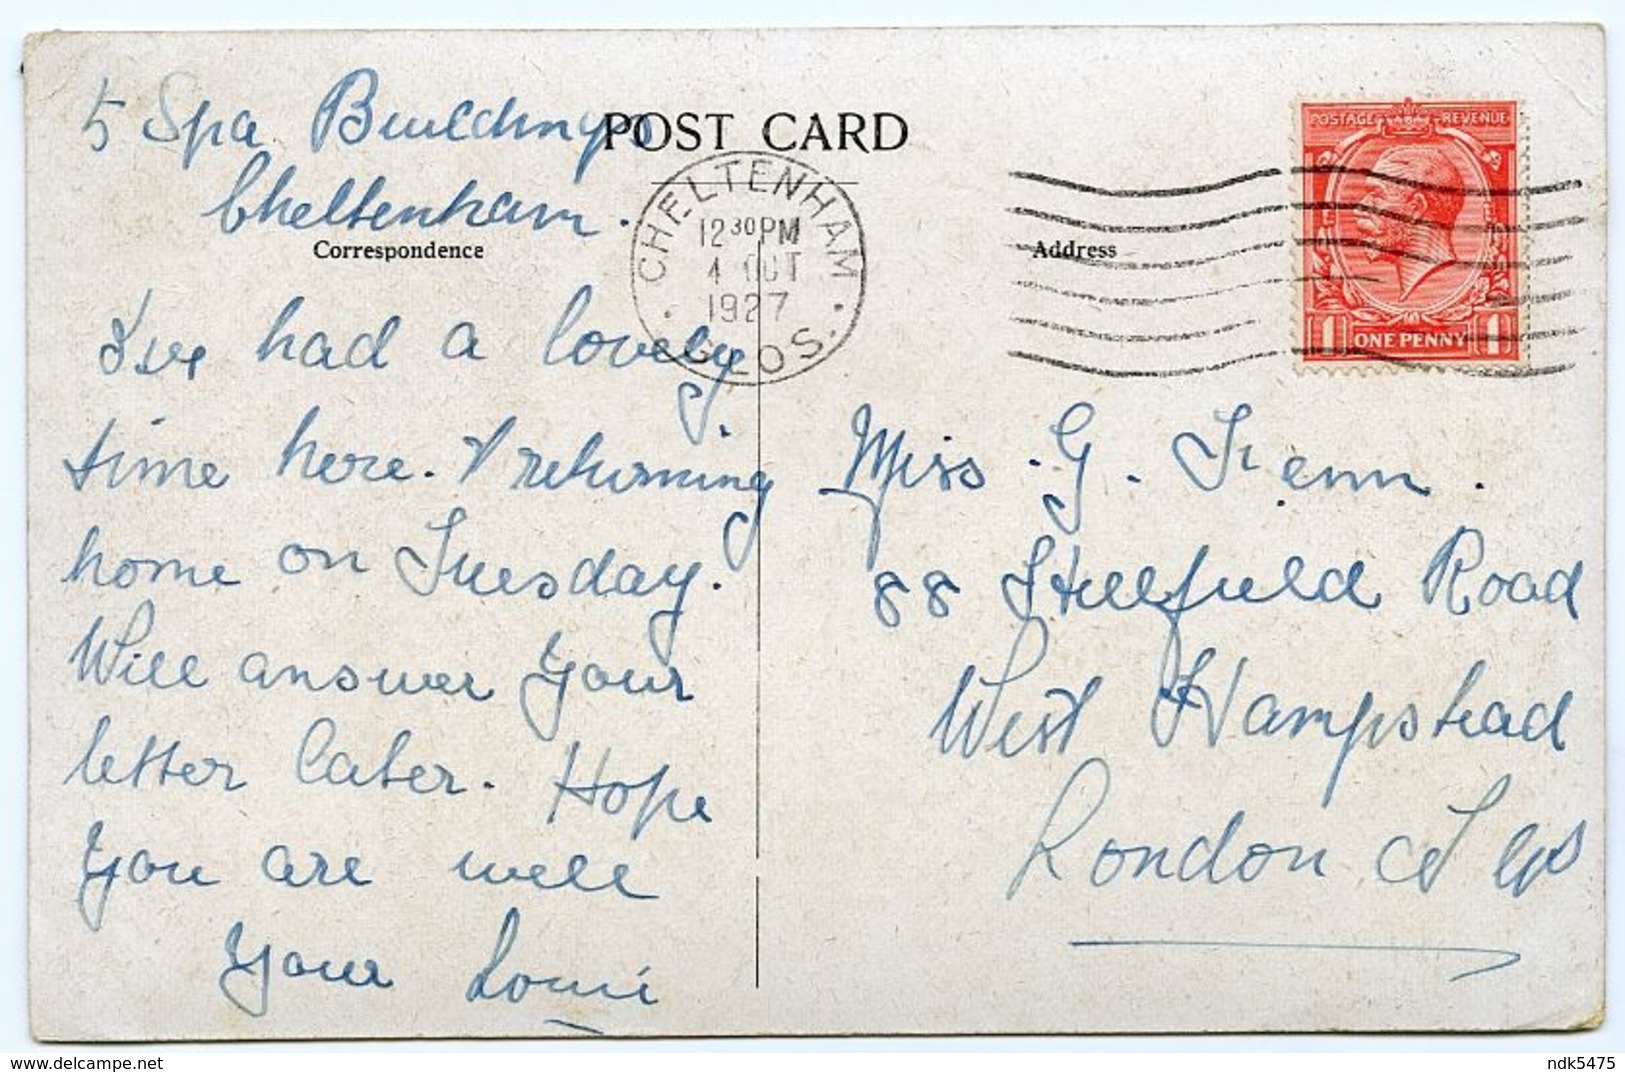 5 Spa Buildings
Cheltenham.
POST CARD
CHELTENHAM
12 30 PM
4 OCT
1927
GLOS.
POSTAGE REVENUE
1 ONE PENNY 1
Correspondence
Address
I've had a lovely
time here. returning
home on Tuesday.
Will answer your
letter later. Hope
you are well
Your
Miss. G.
88 Hillfield Road
West Hampstead
London
delcampe.net
ndk5475